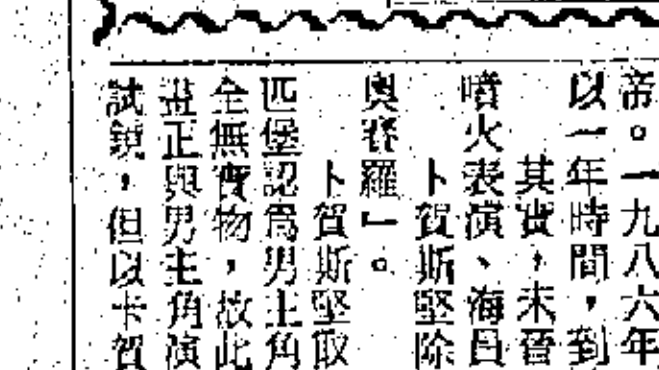 帝。一九八六年
以一年時間，到
其實，未晉
噴火表演、海員
卜賀斯堅除
奥賽羅」。
卜賀斯堅取
匹堡認爲男主角
全無實物，故此
盡正與男主角演
試鏡，但以卡賀